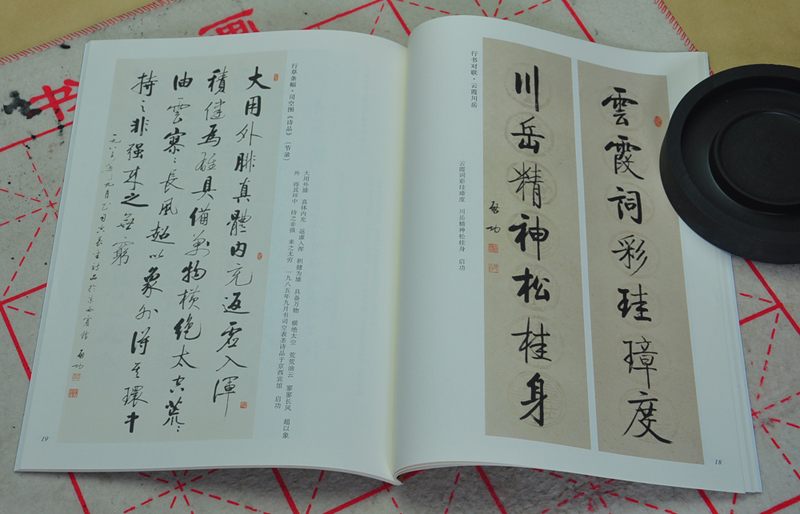 雲霞詞彩珪璋度
川岳精神松桂身
启功
行书对联·云霞川岳
云霞词彩珪璋度 川岳精神松桂身 启功
18
行草条幅·司空图《诗品》(节录)
大用外腓 真体内充 返虚入浑 积健为雄 具备万物 横绝太空 荒荒油云 寥寥长风 超以象
外 得其环中 持之非强 来之无穷 一九八五年九月书司空表圣诗品于京西宾馆 启功
大用外腓真體内充返虛入渾
積健為雄具備萬物横絶太空荒〻
油雲寥〻長風超以象外得其環中
持之非强来之無窮
启功
19
书